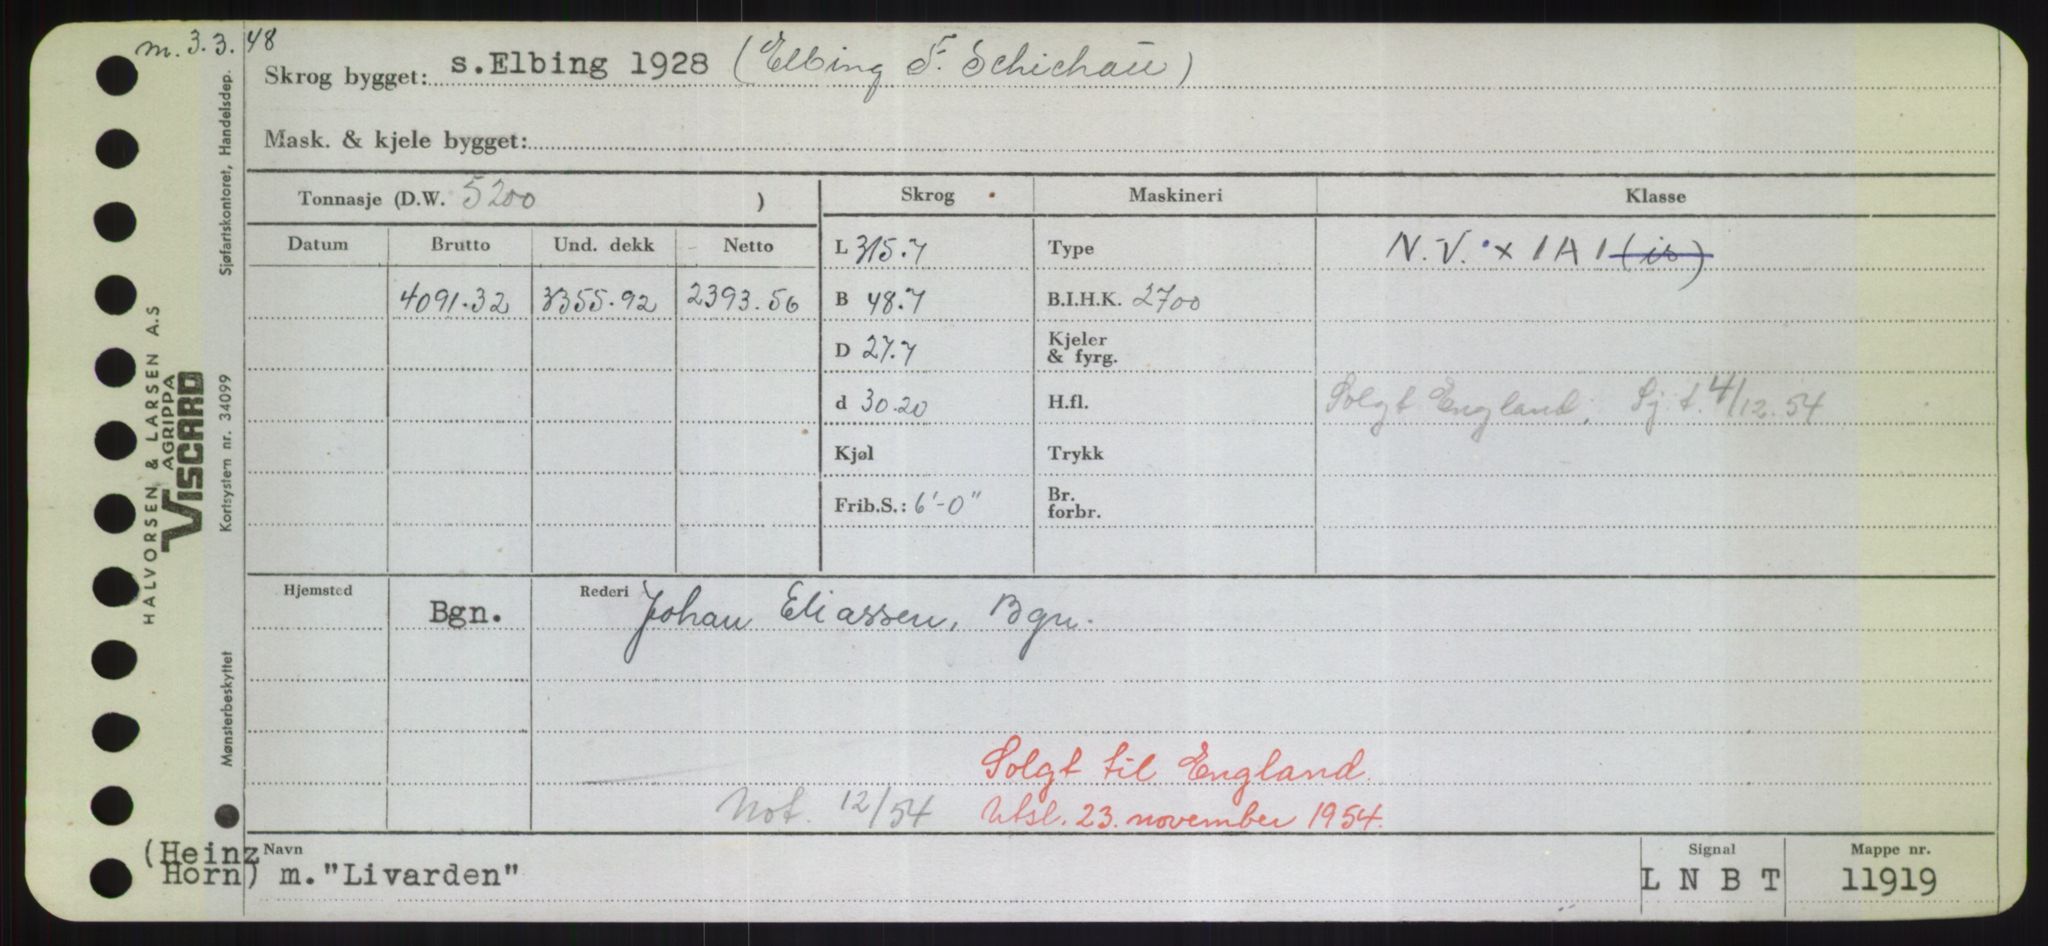 m. 3.3.48
Skrog bygget: s.Elbing 1928 (Elbing F. Schichau)
Mask. & kjele bygget:
Tonnasje (D.W. 5200 )
Skrog
Maskineri
Klasse
Datum Brutto Und. dekk Netto
4091.32 3355.92 2393.56
L 315.7
B 48.7
D 27.7
d 30.20
Kjøl
Frib.S.: 6'-0"
Type
B.I.H.K. 2700
Kjeler
& fyrg.
H.fl.
Trykk
Br.
forbr.
N.V. x 1A1 (is)
Solgt England. Sj. t. 4/12.54
Hjemsted Bgn.
Rederi Johan Eliassen, Bgn.
Solgt til England.
Not. 12/54 Utsl. 23. november 1954.
(Heinz
Horn)
Navn
m."Livarden"
Signal
L N B T
Mappe nr.
11919
HALVORSEN & LARSEN A.S
AGRIPPA
VISCARD
Mønsterbeskyttet Kortsystem nr. 34099 Sjøfartskontoret, Handelsdep.